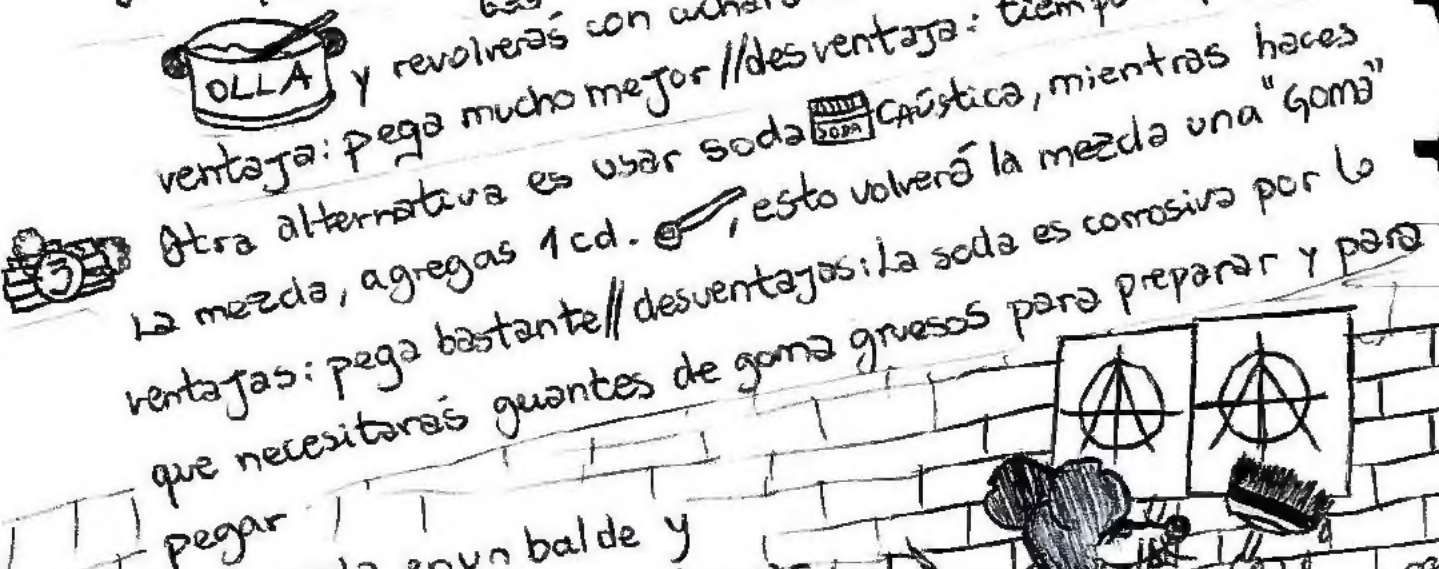 y revolverás con
OLLA
ventaja: pega mucho mejor // desventaja:
Otra alternativa es usar soda SODA CAÚstica, mientras haces
La mezcla, agregas 1 cd. , esto volverá la mezcla una "Goma"
3
ventajas: pega bastante // desventajas: La soda es corrosiva por lo
que necesitarás guantes de goma gruesos para preparar y para
pegar
en un balde y